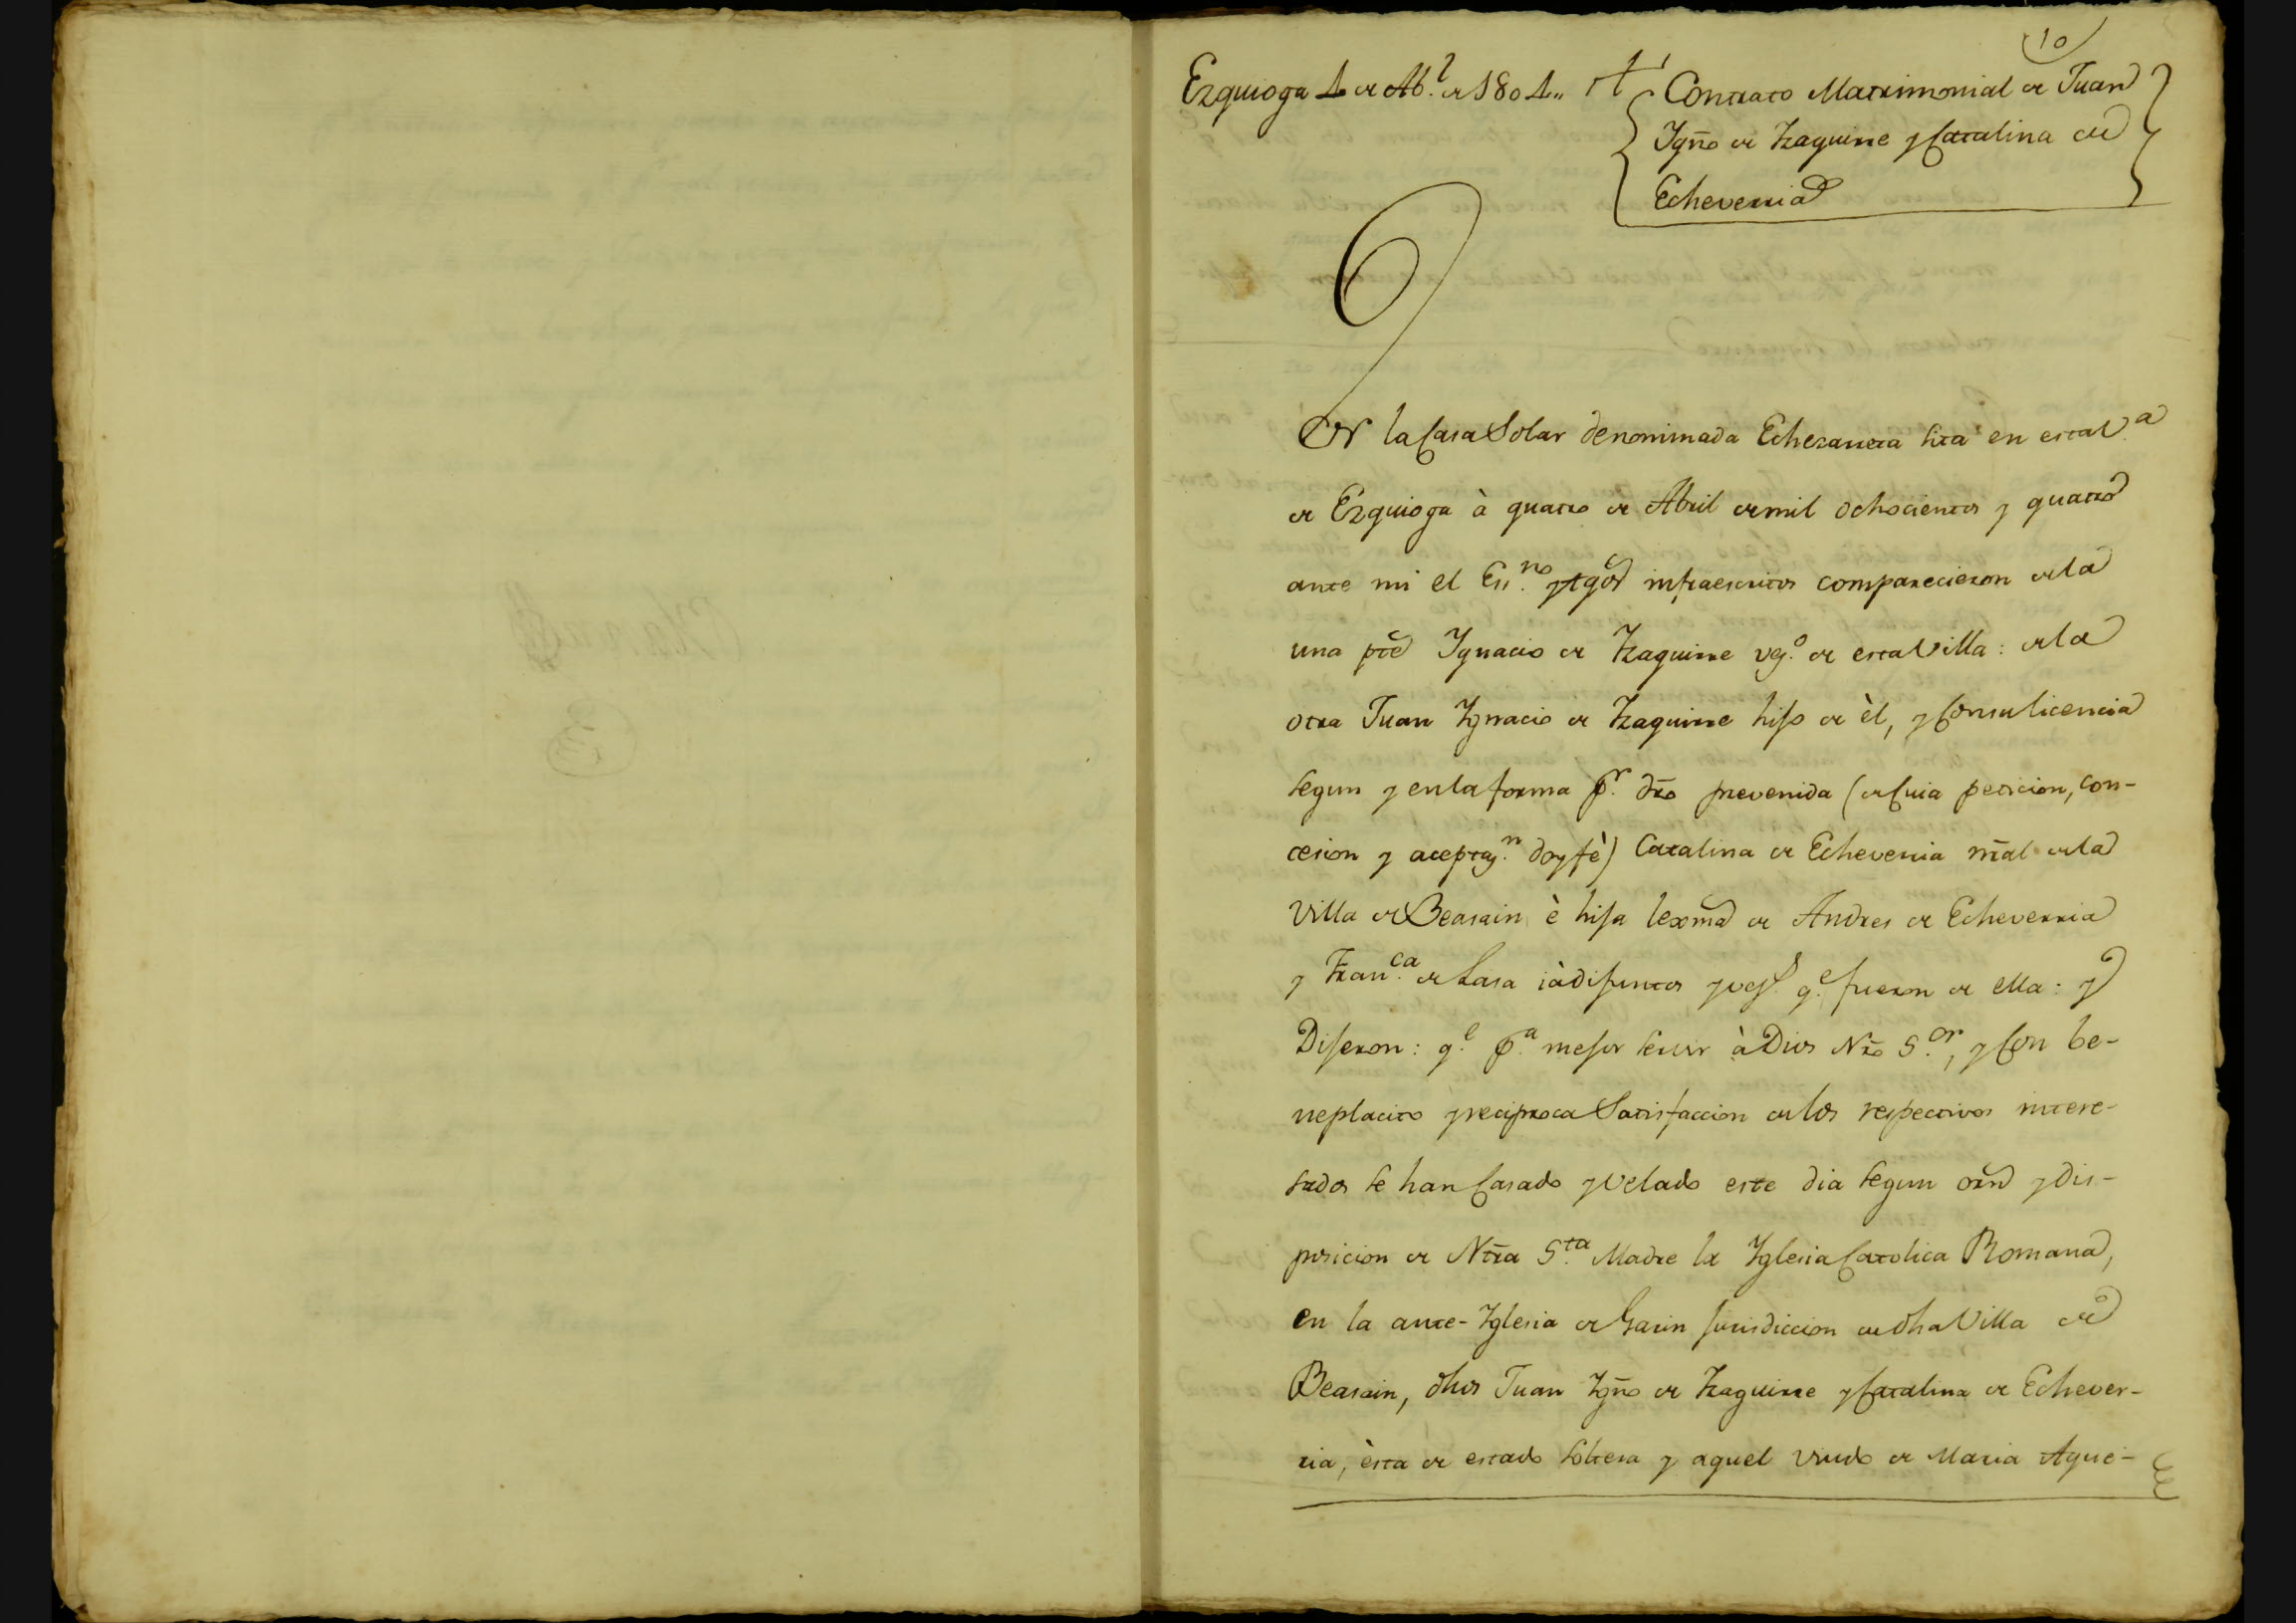 10
Ezquioga 4 de Ab.l de 1804.. † Contrato Matrimonial de Juan
Ygño de Yzaguirre y Catalina de
Echeverria
En la Casa Solar denominada Echezarreta sita en esta V.a
de Ezquioga à quatro de Abril de mil ochocientos y quatro
ante mi el Ess.no y tgos infraescritos comparecieron de la
una pte Ygnacio de Yzaguirre vez.o de esta Villa: de la
otra Juan Ygnacio de Yzaguirre hijo de èl, y Con su licencia
segun y en la forma p.r dro prevenida (de Cuia peticion, con-
cesion y aceptaz.n doy fè) Catalina de Echeverria nral de la
Villa de Beasain, è hija lexma de Andres de Echeverria
y Fran.ca de Lasa ià difuntos y vez.s q.e fueron de ella: y
Dijeron: q.e p.a mejor servir à Dios Nro S.or, y Con be-
neplacito y reciproca Satisfaccion de los respectivos intere-
sados se han Casado y Velado este dia segun orn y dis-
posicion de Ntra S.ta Madre la Yglesia Catolica Romana,
en la ante-Yglesia de Garin Jurisdiccion de dha Villa de
Beasain, dhos Juan Ygño de Yzaguirre y Catalina de Echever-
ria, èsta de estado soltera y aquel viudo de Maria Ague-